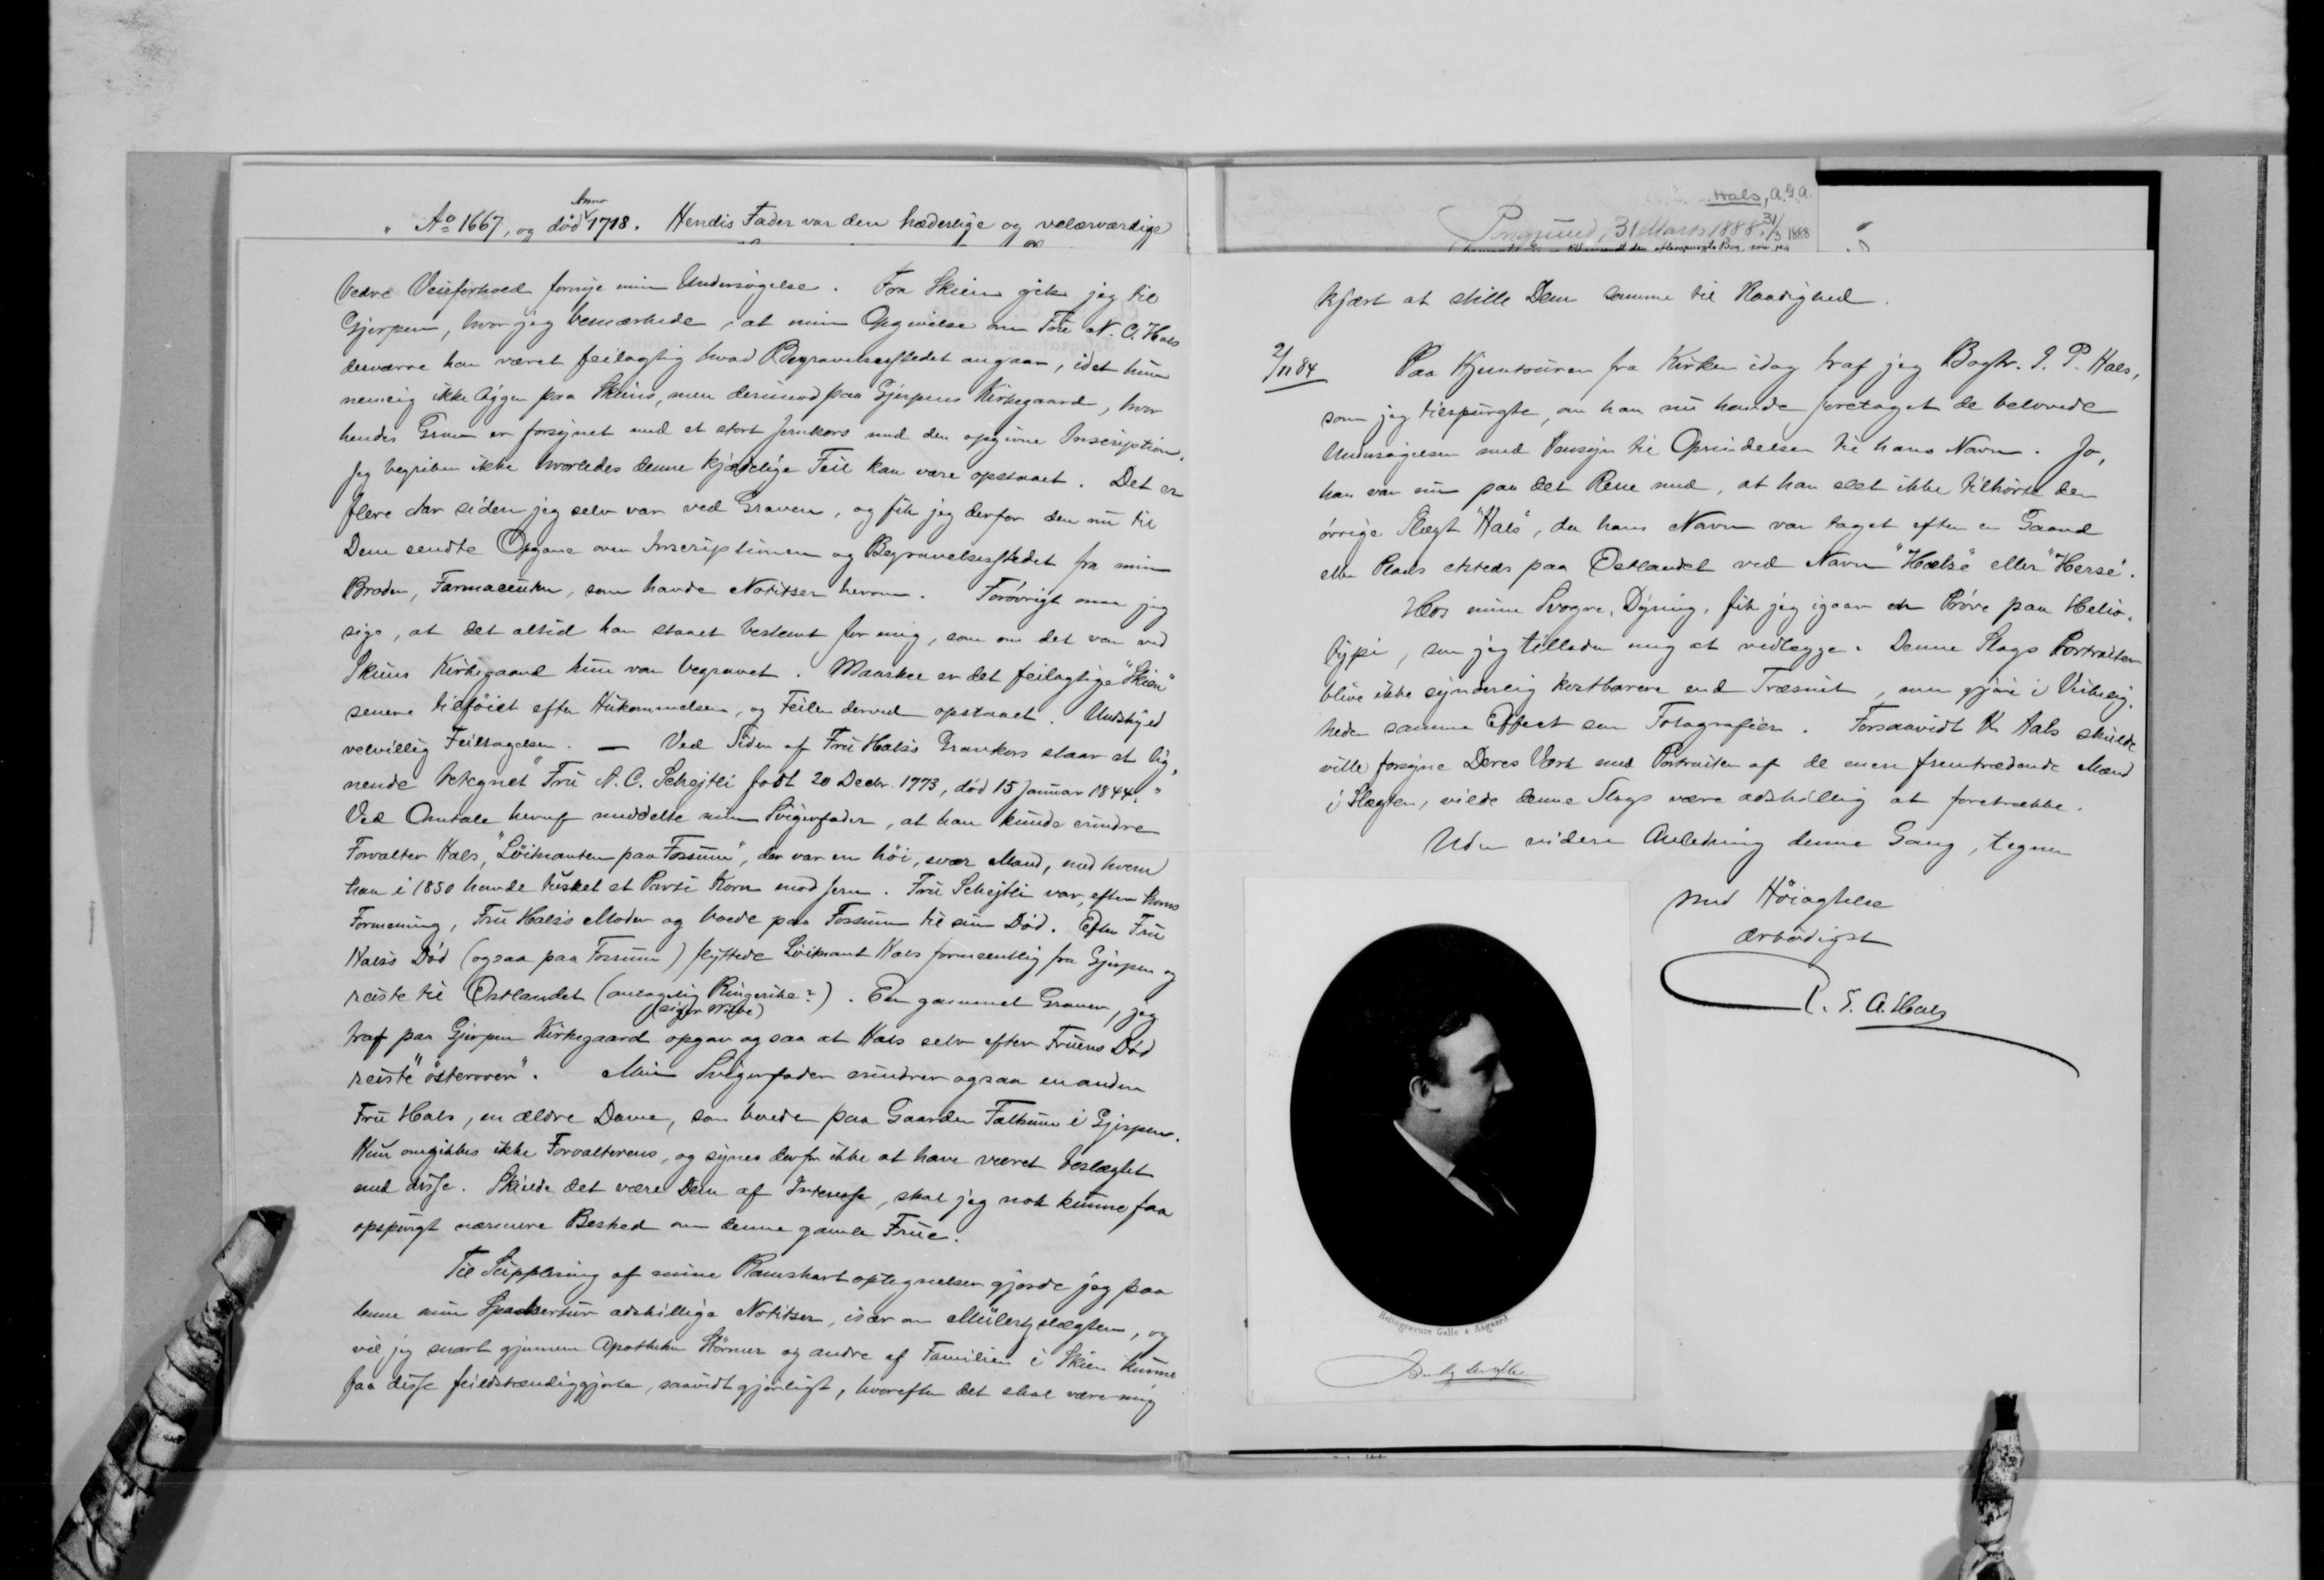 " Aº 1667, og død Anno 1718. Hendis Fader var den hæderlige og velærværdige
bedre Veirforhold fornye min Undersøgelse. Fra Skien gik jeg til
Gjerpen, hvor jeg bemærkede, at min Opgivelse om Fru N. C. Hals
desværre har været feilagtig hvad Begravelsesstedet angaar, idet hun
nemlig ikke ligger paa Skiens, men derimod paa Gjerpens Kirkegaard, hvor
hendes Grav er forsynet med et stort Jernkors med den opgivne Inscription.
Jeg begriber ikke hvorledes denne kjedelige Feil kan være opstaaet. Det er
flere Aar siden jeg selv var ved Graven, og fik jeg derfor den nu til
Dem sendte Opgave over Inscriptionen og Begravelsesstedet fra min
Broder, Farmaceuten, som havde Notitser herom. Forøvrigt maa jeg
sige, at det altid har staaet bestemt for mig, som om det var ved
Skiens Kirkegaard hun var begravet. Maaskee er det feilagtige "Skien"
senere tilføiet efter Hukommelsen, og Feilen derved opstaaet. Undskyld
velvillig Feiltagelsen. — Ved Siden af Fru Hals's Gravkors staar et lig-
nende betegnet "Fru A. C. Schejtli født 20 Decbr. 1773, død 15 Januar 1844."
Ved Omtale heraf meddelte min Svigerfader, at han kunde erindre
Forvalter Hals, "Löitnanten paa Fossum", der var en høi, svær Mand, med hvem
han i 1850 havde tusket et Parti Korn mod Jern. Fru Schejtli var, efter hans
Formening, Fru Hals's Moder og boede paa Fossum til sin Død. Efter Fru
Hals's Død (ogsaa paa Fossum) flyttede Löitnant Hals formentlig fra Gjerpen og
reiste til Østlandet (antagelig Ringerike?). En gammel Graver, jeg
(siger Wibe)
traf paa Gjerpen Kirkegaard opgav ogsaa at Hals selv efter Fruens Død
reiste "österover". Min Svigerfader erindrer ogsaa en anden
Fru Hals, en ældre Dame, som boede paa Gaarden Falkum i Gjerpen.
Hun omgikkes ikke Forvalterens, og synes derfor ikke at have været beslægtet
med disse. Skulde det være Dem af Interesse, skal jeg nok kunne faa
opspurgt nærmere Besked om denne gamle Frue.
Til Supplering af mine Ramshartoptegnelser gjorde jeg paa
denne min Spadsertur adskillige Notitser, især om Müllertzslægten, og
vil jeg snart gjennem Apotheker Störmer og andre af Familien i Skien kunne
faa disse fuldstændiggjorte, saavidt gjørligt, hvorefter det skal være mig
Hals, A.G.A.
Porsgrund, 31 Marts 1888. 31/3 1888
kjært at stille Dem samme til Raadighed.
2/11 84 Paa Hjemtouren fra Kirken idag traf jeg Bogtr. S. P. Hals,
som jeg tilspurgte, om han nu havde foretaget de belovede
Undersøgelser med Hensyn til Oprindelsen til hans Navn. Jo,
han var nu paa det Rene med, at han slet ikke tilhörte den
övrige Slægt "Hals", da hans Navn var taget efter en Gaard
eller Plads etsteds paa Østlandet ved Navn "Hælse" eller "Herse".
Hos min Svoger, Dyring, fik jeg igaar en Pröve paa Helio-
typi, som jeg tillader mig at vedlægge. Denne Slags Portraiter
blive ikke synderlig kostbarere end Træsnit, men gjøre i Virkelig-
heden samme Effect som Fotografier. Forsaavidt Hr Hals skulde
ville forsyne Deres Værk med Portraiter af de mere fremtrædende Mænd
i Slægten, vilde denne Slags være adskillig at foretrække.
Uden videre Anledning denne Gang, tegner
med Höiagtelse
ærbødigst
A. Hals
Heliogravure Galle & Aagaard